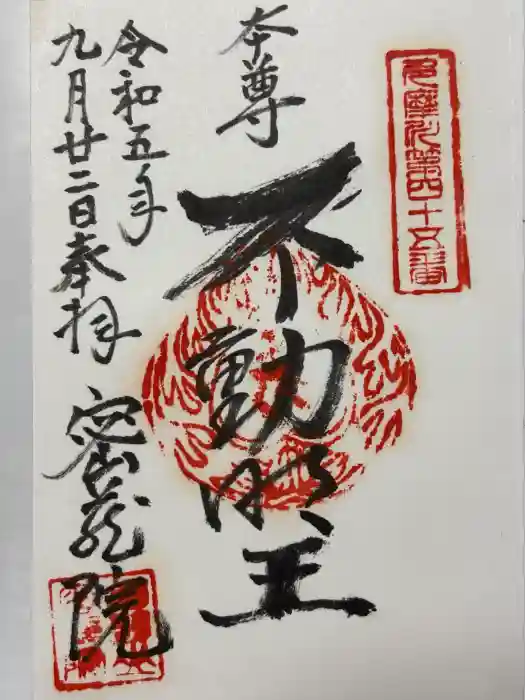 多摩
第四十五番
本尊
不動明王
令和五年
九月廿二日奉拝
密蔵院